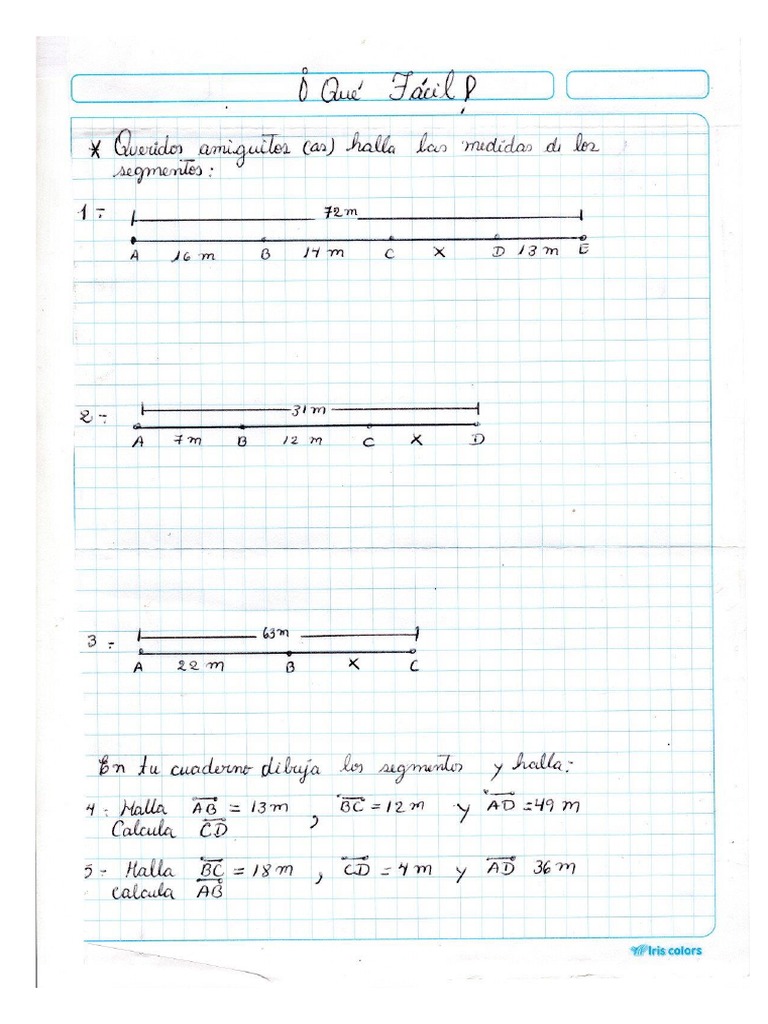 ¡Qué Fácil!
* Queridos amiguitos (as) halla las medidas de los
segmentos:
1-
72m
A 16 m B 14 m C X D 13 m E
2-
31 m
A 7 m B 12 m C X D
3-
63m
A 22 m B X C
En tu cuaderno dibuja los segmentos y halla:
4- Halla AB = 13 m , BC = 12 m y AD = 49 m
Calcula CD
5- Halla BC = 18 m , CD = 4 m y AD 36 m
calcula AB
Iris colors